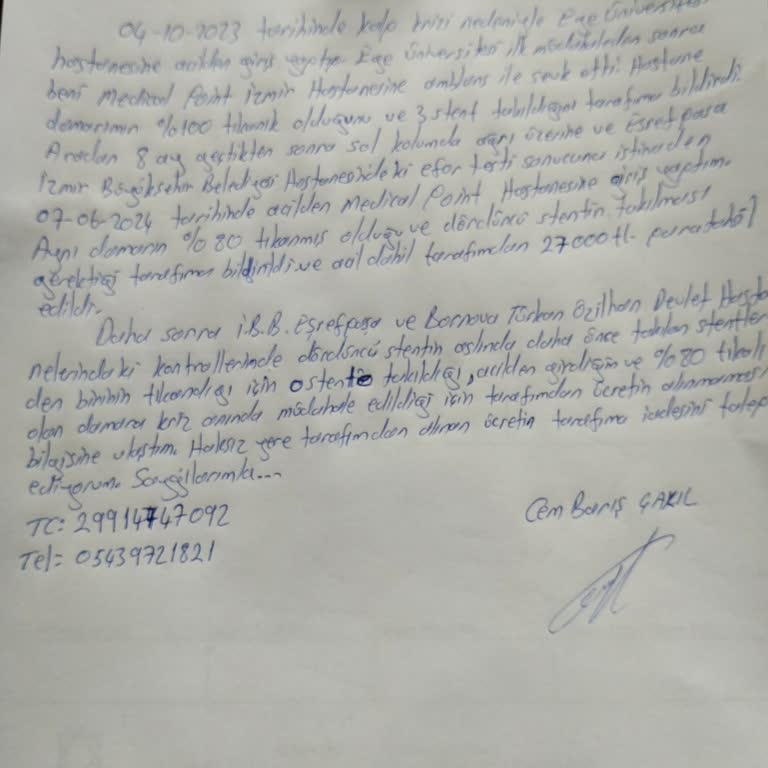 04-10-2023 tarihinde kalp krizi nedeniyle Ege Üniversitesi
hastanesine acilden giriş yaptım. Ege Üniversitesi ilk müdahaleden sonra
beni Medical Point İzmir Hastanesine amblans ile sevk etti. Hastane
damarımın %100 tıkanık olduğunu ve 3 stent takıldığını tarafıma bildirdi.
Aradan 8 ay geçtikten sonra sol kolumda ağrı üzerine ve Eşrefpaşa
İzmir Büyükşehir Belediyesi Hastanesindeki efor testi sonucuna istinaden
07-06-2024 tarihinde acilden Medical Point Hastanesine giriş yaptım.
Aynı damarın %80 tıkanmış olduğu ve dördüncü stentin takılması
gerektiği tarafıma bildirildi ve acil dahil tarafımdan 27000tl. para talep
edildi.
Daha sonra İ.B.B. Eşrefpaşa ve Bornova Türkan Özilhan Devlet Hasta
nelerindeki kontrollerimde dördüncü stentin aslında daha önce takılan stentler
den birinin tıkandığı için o stente takıldığı, acilden girdiğim ve %80 tıkalı
olan damara kriz anında müdahale edildiği için tarafımdan ücretin alınmaması
bilgisine ulaştım. Haksız yere tarafımdan alınan ücretin tarafıma iadesini talep
ediyorum. Saygılarımla...
TC: 29914747092
Cem Barış ÇAKIL
Tel= 05439721821